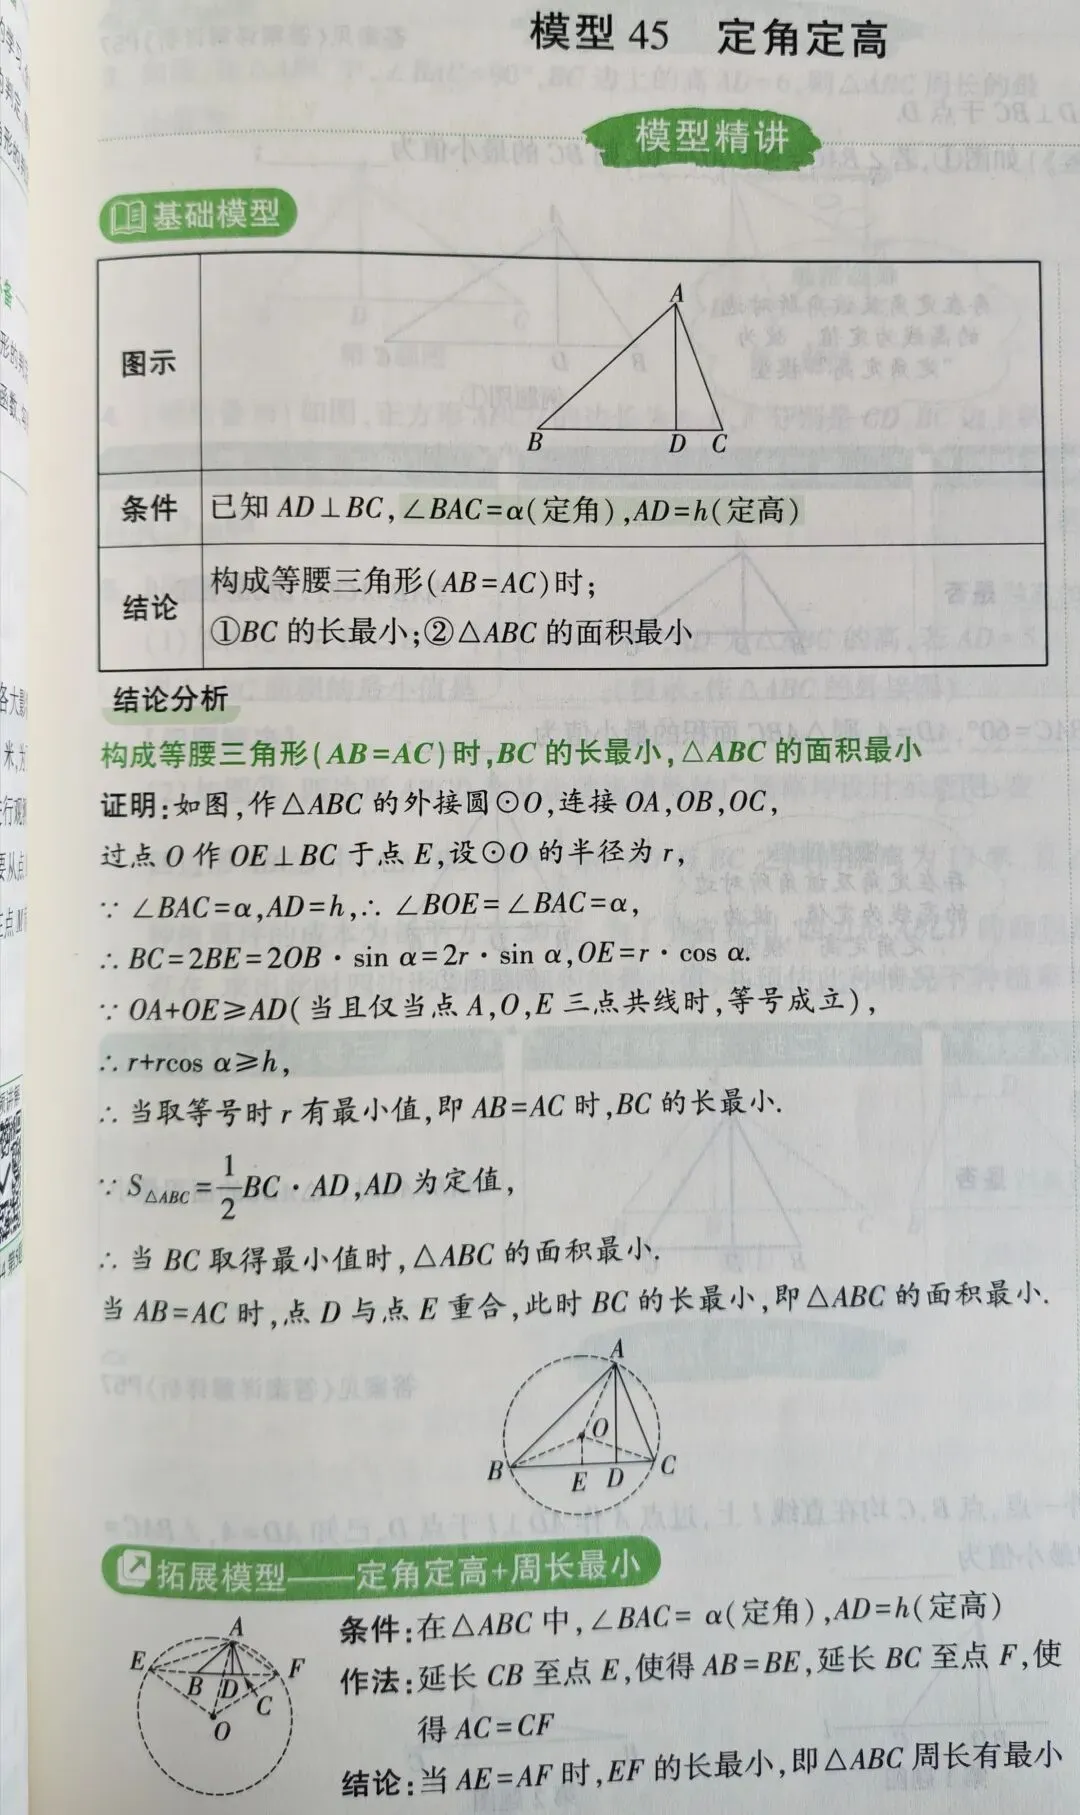 模型 45 定角定高
模型精讲
基础模型
图示
A
B D C
条件
已知 AD⊥BC,∠BAC=α(定角),AD=h(定高)
结论
构成等腰三角形(AB=AC)时;
①BC 的长最小;②△ABC 的面积最小
结论分析
构成等腰三角形(AB=AC)时,BC 的长最小,△ABC 的面积最小
证明:如图,作△ABC 的外接圆⊙O,连接OA,OB,OC,
过点 O 作 OE⊥BC 于点 E,设⊙O 的半径为 r,
∵ ∠BAC=α,AD=h,∴ ∠BOE=∠BAC=α,
∴ BC=2BE=2OB·sin α=2r·sin α,OE=r·cos α.
∵ OA+OE≥AD(当且仅当点 A,O,E 三点共线时,等号成立),
∴ r+rcos α≥h,
∴ 当取等号时 r 有最小值,即 AB=AC 时,BC 的长最小.
∵ S△ABC=1/2 BC·AD,AD 为定值,
∴ 当 BC 取得最小值时,△ABC 的面积最小.
当 AB=AC 时,点 D 与点 E 重合,此时 BC 的长最小,即△ABC 的面积最小.
A
O
B E D C
拓展模型——定角定高+周长最小
A
E F
B D
C
O
条件:在△ABC 中,∠BAC= α(定角),AD=h(定高)
作法:延长 CB 至点 E,使得 AB=BE,延长 BC 至点 F,使
得 AC=CF
结论:当 AE=AF 时,EF 的长最小,即△ABC 周长有最小